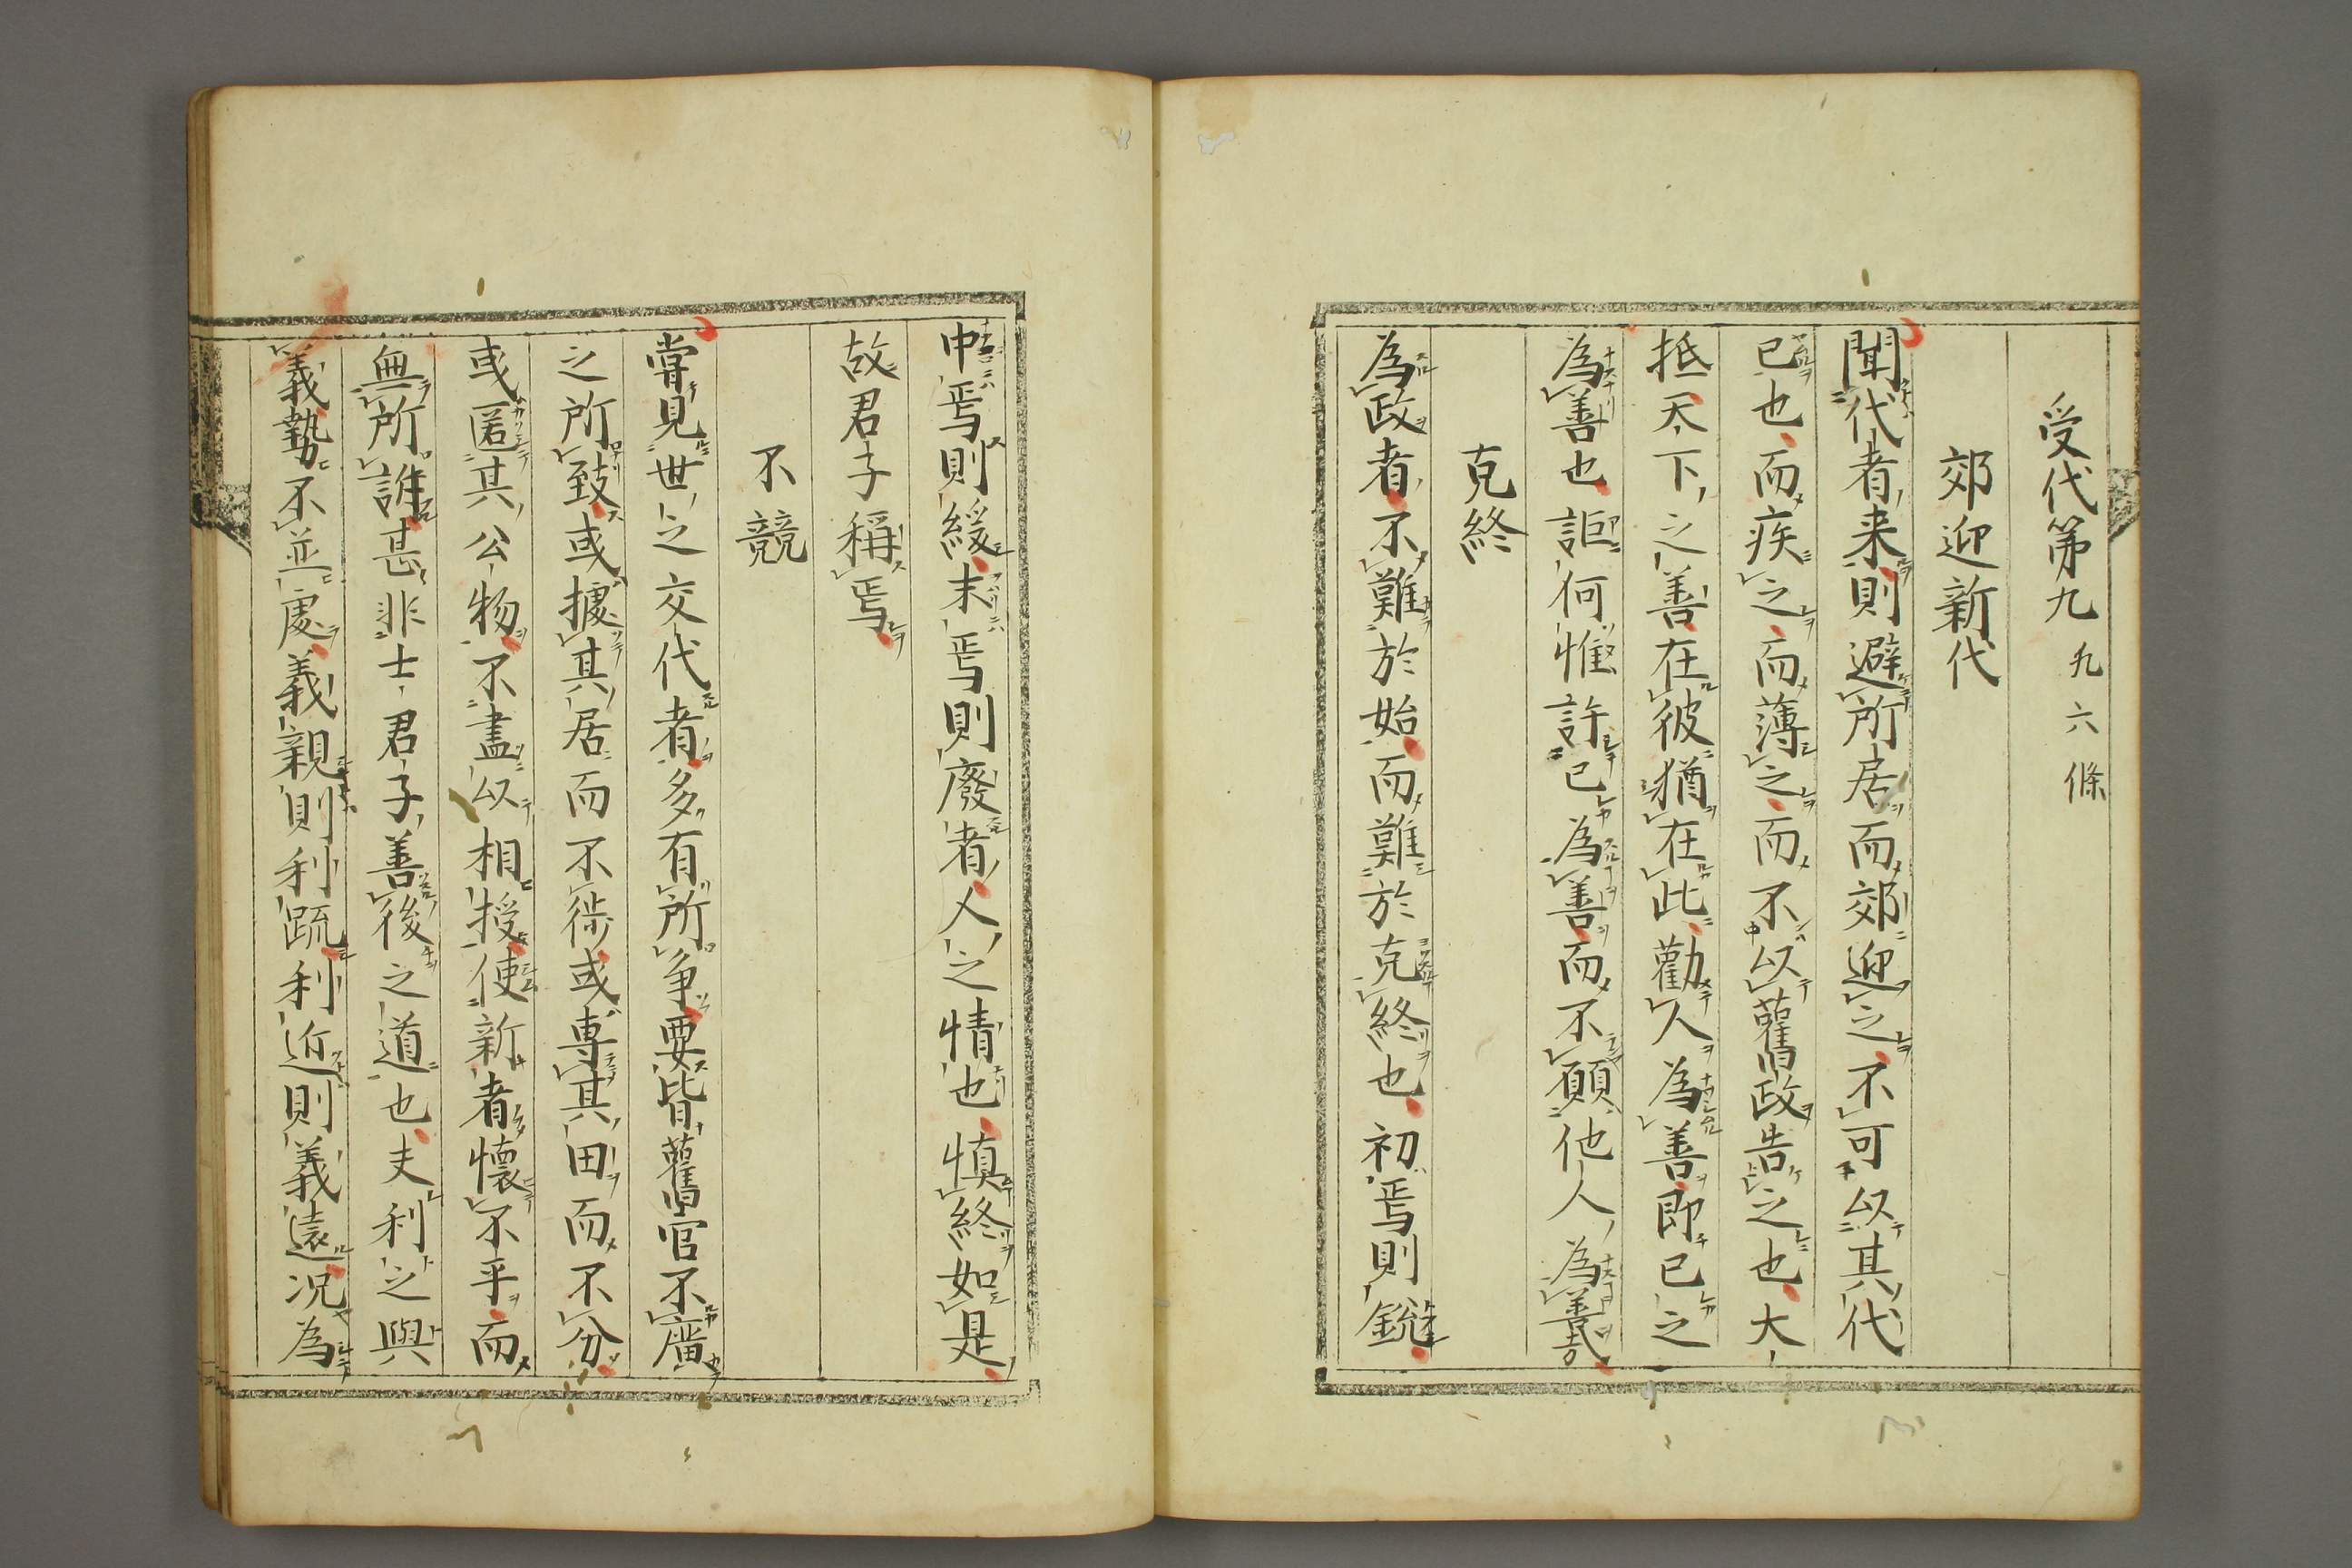 受代第九 凡六條
郊迎新代
聞代者来則避所居而郊迎之不可以其代
已也而疾之而薄之而不以舊政告之也大
抵天下之善在彼猶在此勸人為善即已之
為善也詎何惟許已為善而不願他人為善哉
克終
為政者不難於始而難於克終也初焉則銳
中焉則緩末焉則廢者人之情也慎終如是
故君子稱焉
不競
嘗見世之交代者多有所争要皆舊官不廣
之所致或據其居而不徙或專其田而不分
或匿其公物不盡以相授使新者懐不平而
無所誰甚非士君子善後之道也夫利之與
義勢不並處義親則利疏利近則義遠况為